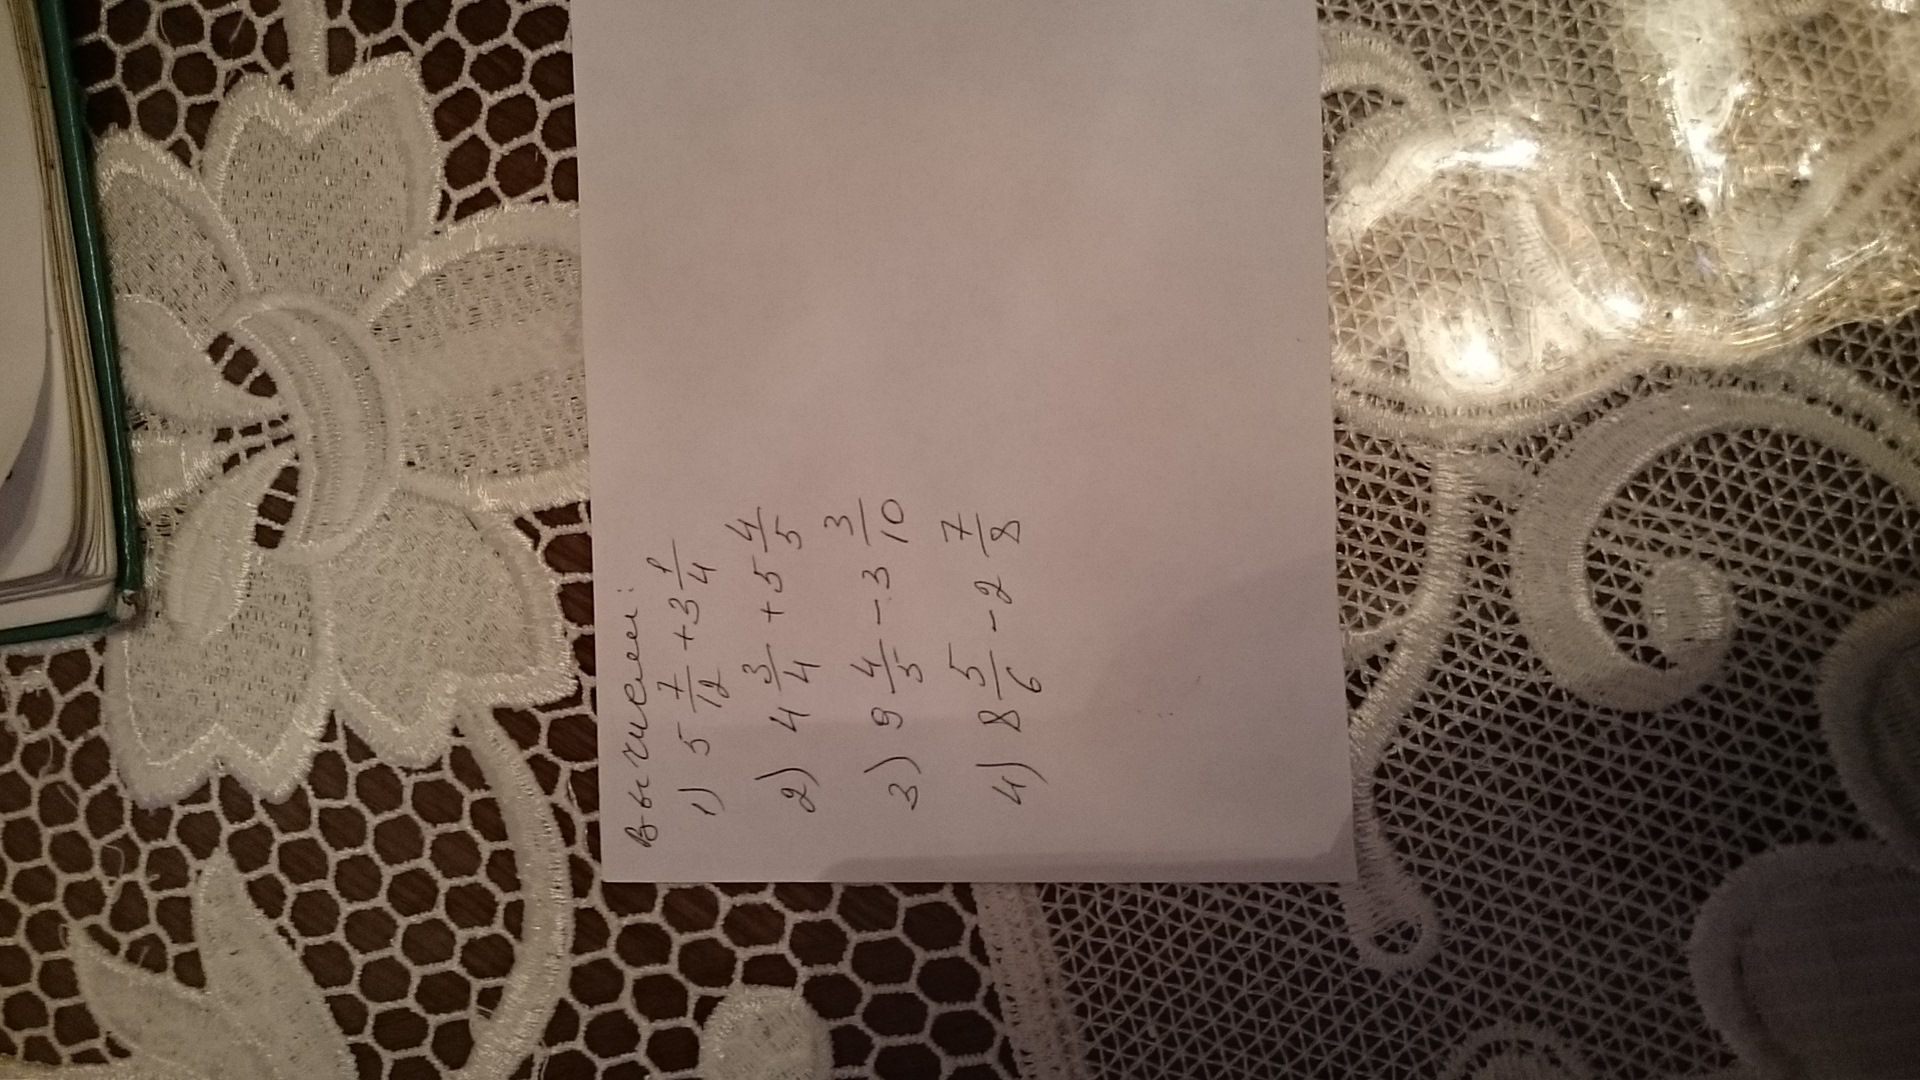 Вычислем:
1) 5 7/12 + 3 1/4
2) 4 3/4 + 5 4/5
3) 9 4/5 - 3 3/10
4) 8 5/6 - 2 7/8